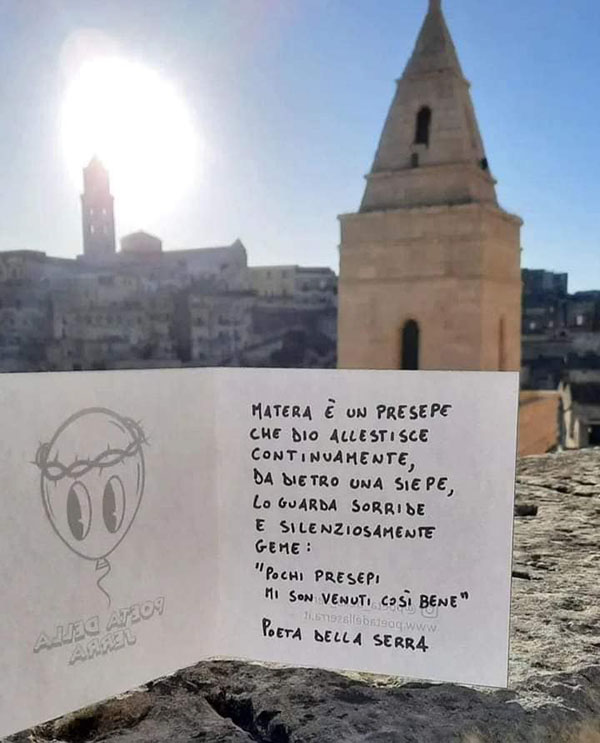 MATERA È UN PRESEPE
CHE DIO ALLESTISCE
CONTINUAMENTE,
DA DIETRO UNA SIEPE,
LO GUARDA SORRIDE
E SILENZIOSAMENTE
GEME:
"POCHI PRESEPI
MI SON VENUTI COSÌ BENE"
POETA DELLA SERRA
POETA DELLA
SERRA
www.poetadellaserra.it